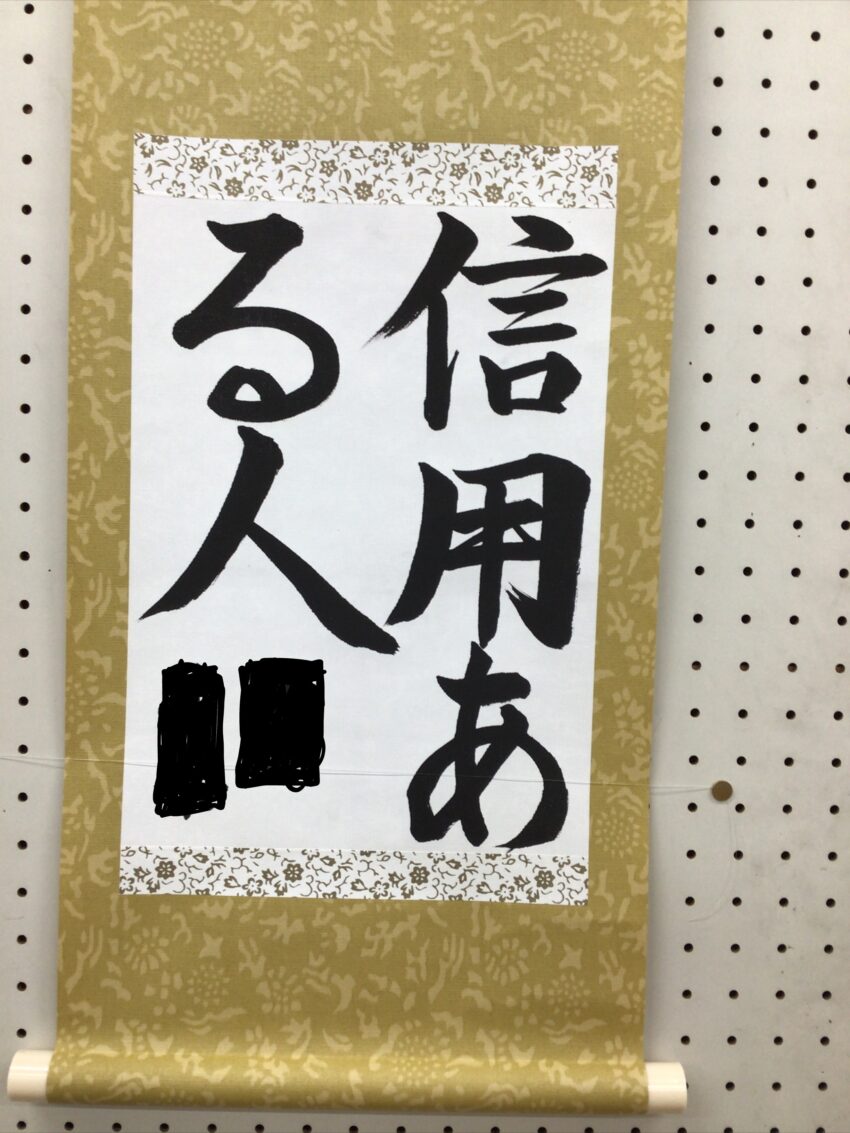 信用あ
る人